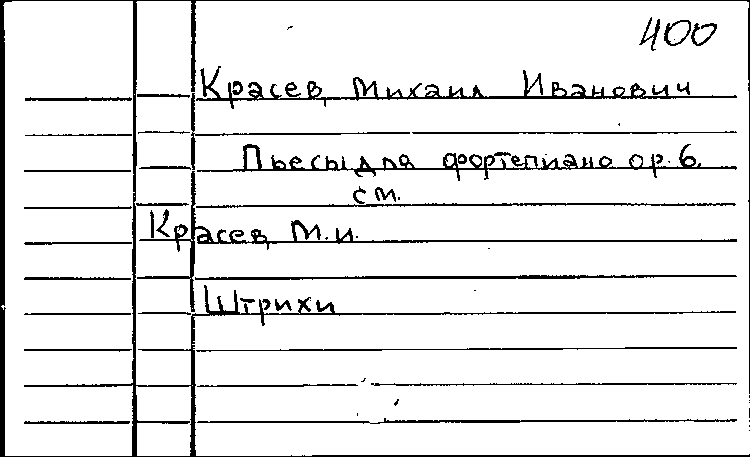 400
Красев, Михаил Иванович
Пьесы для фортепиано ор. 6.
см.
Красев, М.И.
Штрихи